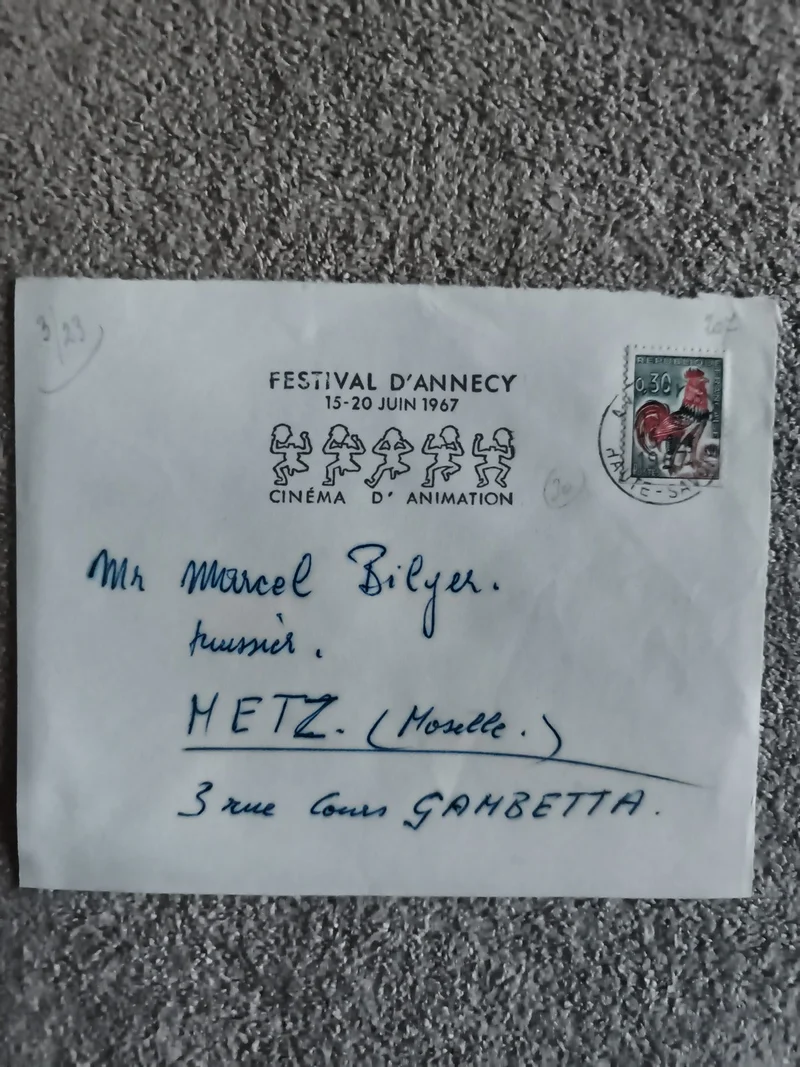 3/23
FESTIVAL D'ANNECY
15-20 JUIN 1967
CINÉMA D'ANIMATION
30
0,30
HAUTE-SA
Mr Marcel Bilger.
huissier.
METZ. (Moselle.)
3 rue Cours GAMBETTA.